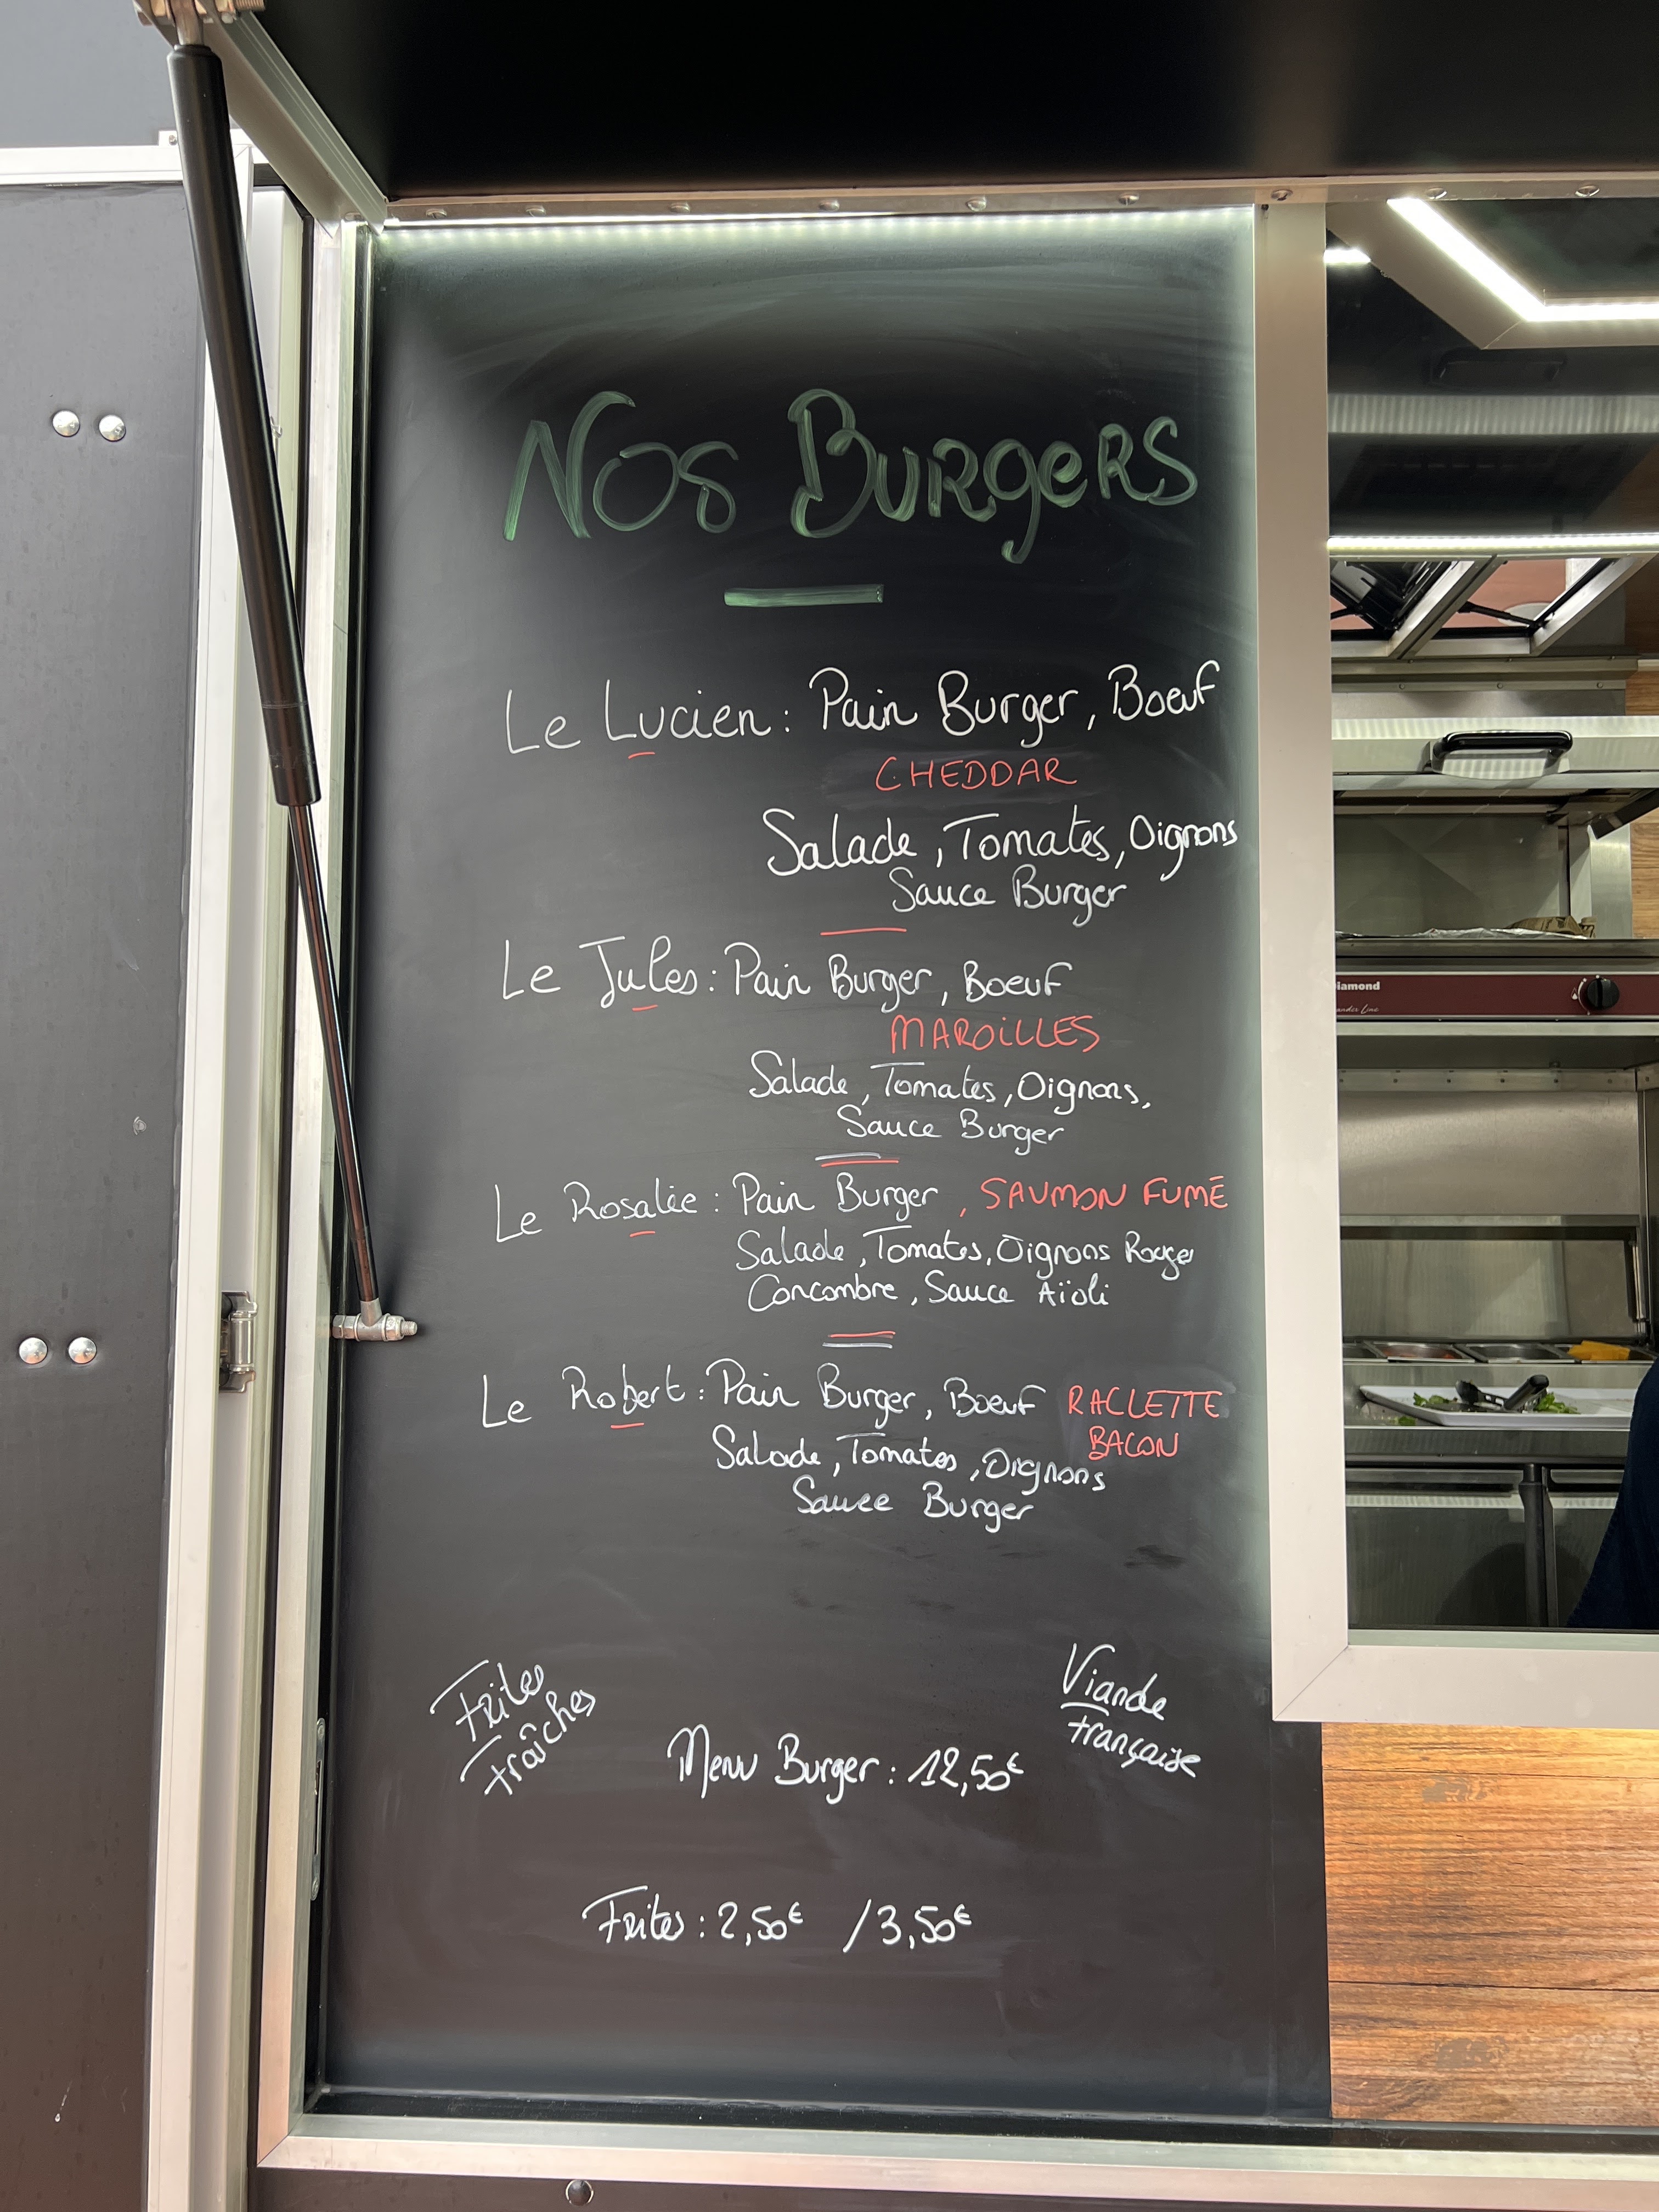 Nos Burgers
Le Lucien : Pain Burger, Boeuf
CHEDDAR
Salade, Tomates, Oignons
Sauce Burger
Le Jules : Pain Burger, Boeuf
MAROiLLES
Salade, Tomates, Oignons,
Sauce Burger
Le Rosalie : Pain Burger, SAUMON FUMÉ
Salade, Tomates, Oignons Rouges
Concombre, Sauce Aïoli
Le Robert : Pain Burger, Boeuf RACLETTE
BACON
Salade, Tomates, Oignons
Sauce Burger
Frites
fraîches
Viande
française
Menu Burger : 12,50€
Frites : 2,50€ / 3,50€
iamond